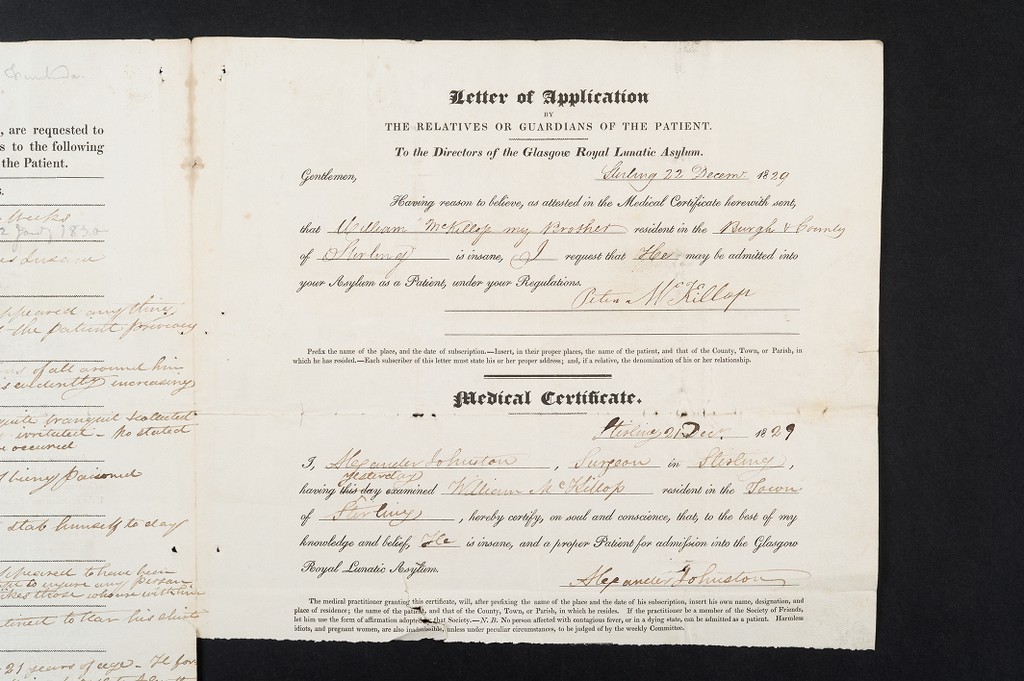 , are requested to
s to the following
the Patient.
s.
Weeks
1830
Insane
appeared anything
the patient previously
of all around him
evidently increasing
quite tranquil & collected
irritated - No stated
occurred
being poisoned
stab himself to day
appeared to have been
to injure any person
likes those who are with him
than his shirt
21 years of age - He for
Letter of Application
BY
THE RELATIVES OR GUARDIANS OF THE PATIENT.
To the Directors of the Glasgow Royal Lunatic Asylum.
Gentlemen,
Stirling 22 Decemr. 1829
Having reason to believe, as attested in the Medical Certificate herewith sent,
that William McKillop my Brother resident in the Burgh & County
of Stirling is insane, I request that He may be admitted into
your Asylum as a Patient, under your Regulations.
Peter McKillop
Prefix the name of the place, and the date of subscription.—Insert, in their proper places, the name of the patient, and that of the County, Town, or Parish, in
which he has resided.—Each subscriber of this letter must state his or her proper address; and, if a relative, the denomination of his or her relationship.
Medical Certificate.
Stirling 21 Decr. 1829
I, Alexander Johnston, Surgeon in Stirling,
yesterday
having this day examined William McKillop resident in the Town
of Stirling, hereby certify, on soul and conscience, that, to the best of my
knowledge and belief, He is insane, and a proper Patient for admission into the Glasgow
Royal Lunatic Asylum.
Alexander Johnston
The medical practitioner granting this certificate, will, after prefixing the name of the place and the date of his subscription, insert his own name, designation, and
place of residence; the name of the patient, and that of the County, Town, or Parish, in which he resides. If the practitioner be a member of the Society of Friends,
let him use the form of affirmation adopted by that Society.—N. B. No person affected with contagious fever, or in a dying state, can be admitted as a patient. Harmless
idiots, and pregnant women, are also inadmissible, unless under peculiar circumstances, to be judged of by the weekly Committee.